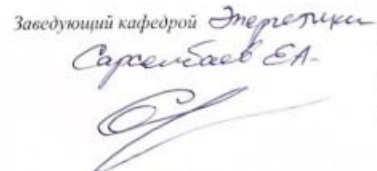 Заведующий кафедрой Энергетики
Сарсембаев ЕА-